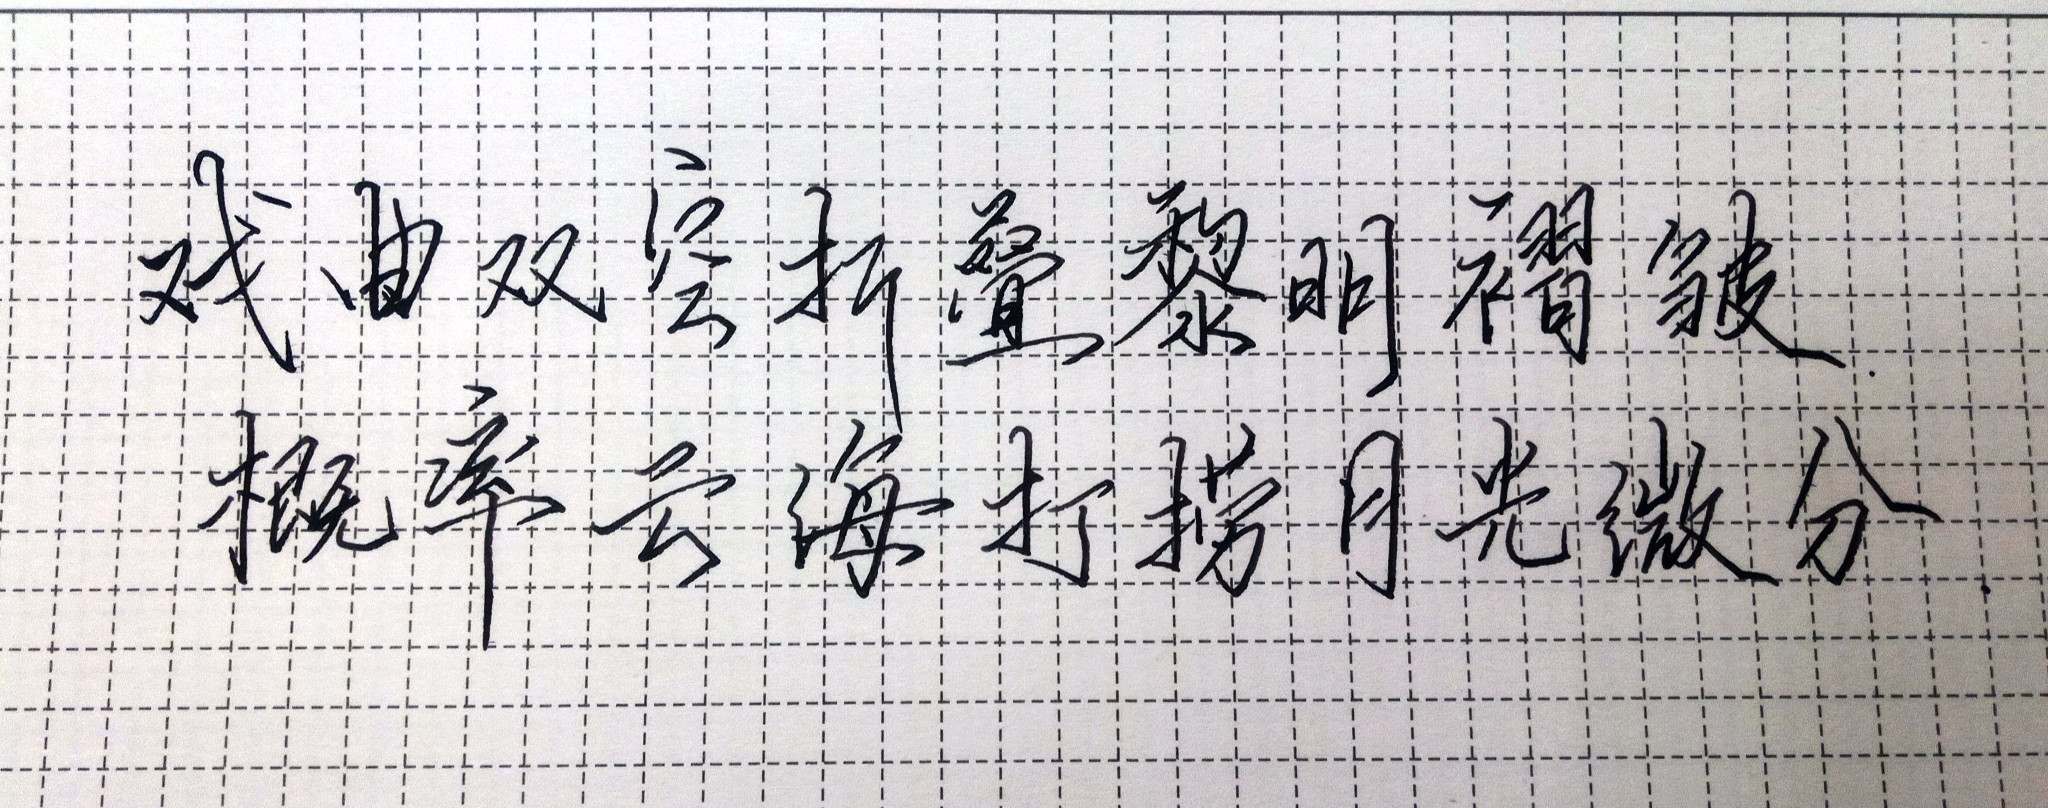 戏曲双空折叠黎明褶皱.
概率云海打捞月光微分.